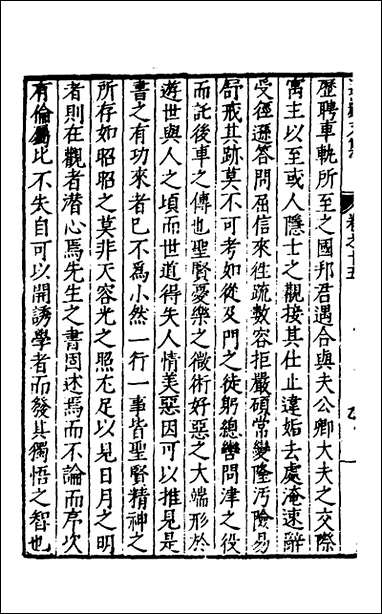 卷之十五
歷聘車軌所至之國邦君遇合與夫公卿大夫之交際
寓主以至或人隱士之觀接其仕止違姤去處淹速辭
受徑遜答問屈信來往疏數容拒嚴碩常變隆汚險易
舒戒其跡莫不可考如從及門之徒躬總轡問津之役
而託後車之傳也聖賢憂樂之微術好惡之大端形於
遊世與人之頃而世道得失人情美惡因可以推見是
書之有功來者已不爲小然一行一事皆聖賢精神之
所存如昭昭之莫非天容光之照尤足以見日月之明
者則在觀者潛心焉先生之書固述焉而不論而序次
有倫屬比不失自可以開誘學者而發其獨悟之智也